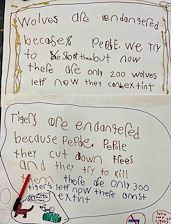 Wolves are endangered
because peple. we try
to but now
there are only 200 wolves
left now they can extint
Tigers are endangered
because Peple. Peple
they cut down trees
an they try to kill
them there are only 300
tigers left now there
extint